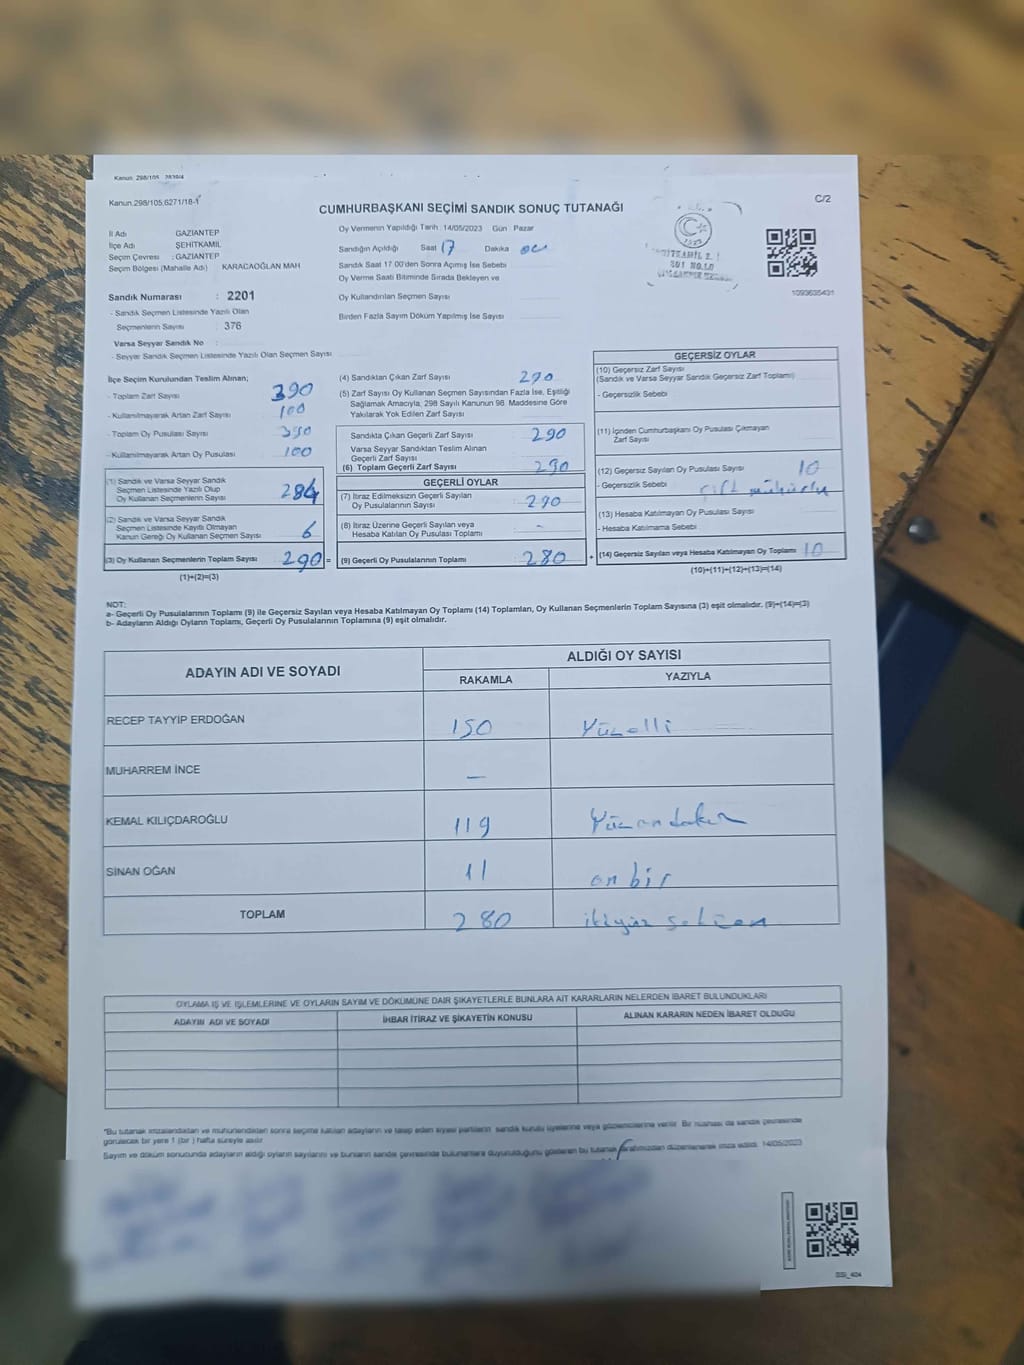 Kanun. 298/105
Kanun.298/105,6271/18-1
C/2
CUMHURBAŞKANI SEÇİMİ SANDIK SONUÇ TUTANAĞI
İl Adı GAZİANTEP
İlçe Adı ŞEHİTKAMİL
Seçim Çevresi : GAZİANTEP
Seçim Bölgesi (Mahalle Adı) KARACAOĞLAN MAH
Sandık Numarası : 2201
- Sandık Seçmen Listesinde Yazılı Olan
Seçmenlerin Sayısı : 376
Varsa Seyyar Sandık No :
- Seyyar Sandık Seçmen Listesinde Yazılı Olan Seçmen Sayısı
Oy Vermenin Yapıldığı Tarih : 14/05/2023 Gün Pazar
Sandığın Açıldığı Saat 17 Dakika 00
Sandık Saat 17.00'den Sonra Açımış İse Sebebi
Oy Verme Saati Bitiminde Sırada Bekleyen ve
Oy Kullandırılan Seçmen Sayısı
Birden Fazla Sayım Döküm Yapılmış İse Sayısı
1093635431
İlçe Seçim Kurulundan Teslim Alınan;
- Toplam Zarf Sayısı 390
- Kullanılmayarak Artan Zarf Sayısı 100
- Toplam Oy Pusulası Sayısı
- Kullanılmayarak Artan Oy Pusulası 100
(1) Sandık ve Varsa Seyyar Sandık
Seçmen Listesinde Yazılı Olup
Oy Kullanan Seçmenlerin Sayısı 284
(2) Sandık ve Varsa Seyyar Sandık
Seçmen Listesinde Kayıtlı Olmayan
Kanun Gereği Oy Kullanan Seçmen Sayısı 6
(3) Oy Kullanan Seçmenlerin Toplam Sayısı 290 =
(1)+(2)=(3)
(4) Sandıktan Çıkan Zarf Sayısı 290
(5) Zarf Sayısı Oy Kullanan Seçmen Sayısından Fazla İse, Eşitliği
Sağlamak Amacıyla, 298 Sayılı Kanunun 98. Maddesine Göre
Yakılarak Yok Edilen Zarf Sayısı
Sandıkta Çıkan Geçerli Zarf Sayısı 290
Varsa Seyyar Sandıktan Teslim Alınan
Geçerli Zarf Sayısı
(6) Toplam Geçerli Zarf Sayısı 290
GEÇERLİ OYLAR
(7) İtiraz Edilmeksizin Geçerli Sayılan
Oy Pusulalarının Sayısı 290
(8) İtiraz Üzerine Geçerli Sayılan veya
Hesaba Katılan Oy Pusulası Toplamı -
(9) Geçerli Oy Pusulalarının Toplamı 280 +
GEÇERSİZ OYLAR
(10) Geçersiz Zarf Sayısı
(Sandık ve Varsa Seyyar Sandık Geçersiz Zarf Toplamı)
- Geçersizlik Sebebi
(11) İçinden Cumhurbaşkanı Oy Pusulası Çıkmayan
Zarf Sayısı
(12) Geçersiz Sayılan Oy Pusulası Sayısı 10
- Geçersizlik Sebebi çift mühürlü
(13) Hesaba Katılmayan Oy Pusulası Sayısı
- Hesaba Katılmama Sebebi
(14) Geçersiz Sayılan veya Hesaba Katılmayan Oy Toplamı 10
(10)+(11)+(12)+(13)=(14)
NOT:
a- Geçerli Oy Pusulalarının Toplamı (9) ile Geçersiz Sayılan veya Hesaba Katılmayan Oy Toplamı (14) Toplamları, Oy Kullanan Seçmenlerin Toplam Sayısına (3) eşit olmalıdır. (9)+(14)=(3)
b- Adayların Aldığı Oyların Toplamı, Geçerli Oy Pusulalarının Toplamına (9) eşit olmalıdır.
ADAYIN ADI VE SOYADI ALDIĞI OY SAYISI
RAKAMLA YAZIYLA
RECEP TAYYİP ERDOĞAN 150 Yüzelli
MUHARREM İNCE —
KEMAL KILIÇDAROĞLU 119 Yüzondokuz
SİNAN OĞAN 11 on bir
TOPLAM 280 ikiyüz seksen
OYLAMA İŞ VE İŞLEMLERİNE VE OYLARIN SAYIM VE DÖKÜMÜNE DAİR ŞİKAYETLERLE BUNLARA AİT KARARLARIN NELERDEN İBARET BULUNDUKLARI
ADAYIN ADI VE SOYADI İHBAR İTİRAZ VE ŞİKAYETİN KONUSU ALINAN KARARIN NEDEN İBARET OLDUĞU
"Bu tutanak imzalandıktan ve mühürlendikten sonra seçime katılan adayların ve talep eden siyasi partilerin sandık kurulu üyelerine veya gözlemcilerine verilir. Bir nüshası da sandık çevresinde
görülecek bir yere 1 (bir) hafta süreyle asılır.
Sayım ve döküm sonucunda adayların aldığı oyların sayılarını ve bunların sandık çevresinde bulunanlara duyurulduğunu gösteren bu tutanak tarafımızdan düzenlenerek imza edildi. 14/05/2023